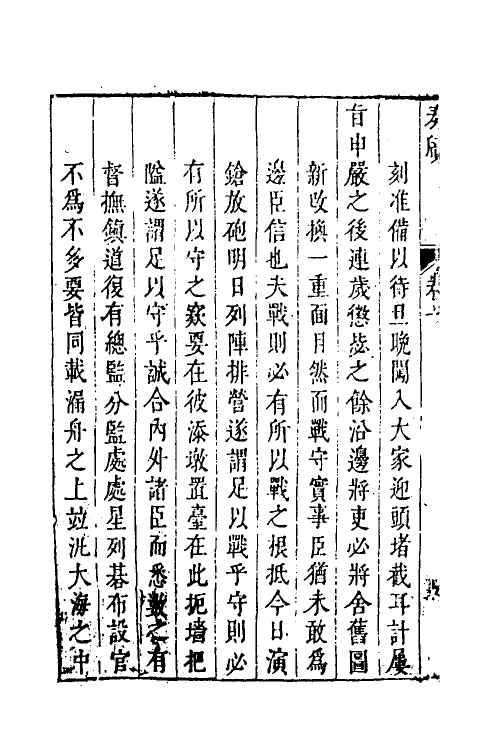 奏
卷
刻准備以待旦晚闖入大家迎頭堵截耳計屢
旨申嚴之後連歲懲毖之餘沿邊將吏必將舍舊圖
新改換一重面目然而戰守實事臣猶未敢為
邊臣信也夫戰則必有所以戰之根抵今日演
鎗放砲明日列陣排營遂謂足以戰乎守則必
有所以守之欵要在彼添墩置臺在此扼墻把
隘遂謂足以守乎誠合內外諸臣而悉數之有
督撫鎮道復有總監分監處處星列碁布設官
不為不多要皆同載漏舟之上並汎大海之中